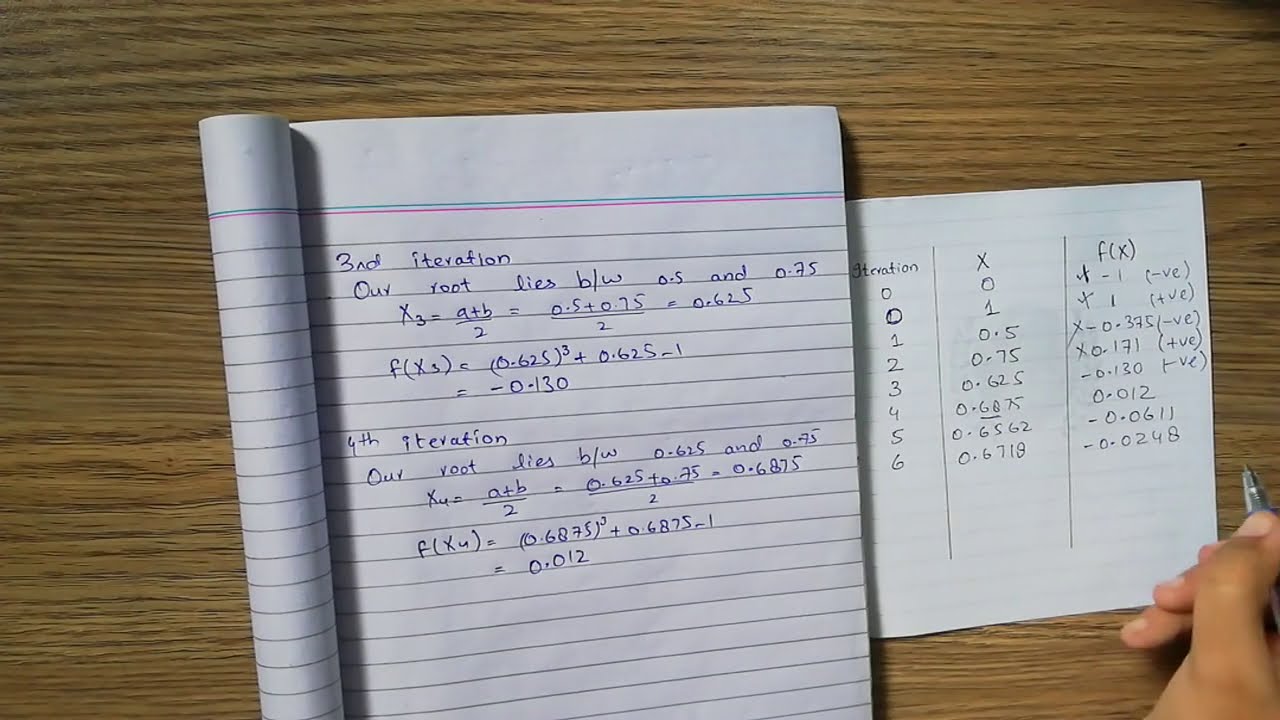 3rd iteration
Our root lies b/w 0.5 and 0.75
X3 = a+b/2 = 0.5+0.75/2 = 0.625
f(X3) = (0.625)³ + 0.625-1
= -0.130
4th iteration
Our root lies b/w 0.625 and 0.75
X4 = a+b/2 = 0.625+0.75/2 = 0.6875
f(X4) = (0.6875)³ + 0.6875-1
= 0.012
Iteration X f(X)
0 0 -1 (-ve)
0 1 1 (+ve)
1 0.5 -0.375 (-ve)
2 0.75 0.171 (+ve)
3 0.625 -0.130 (-ve)
4 0.6875 0.012
5 0.6562 -0.0611
6 0.6718 -0.0248